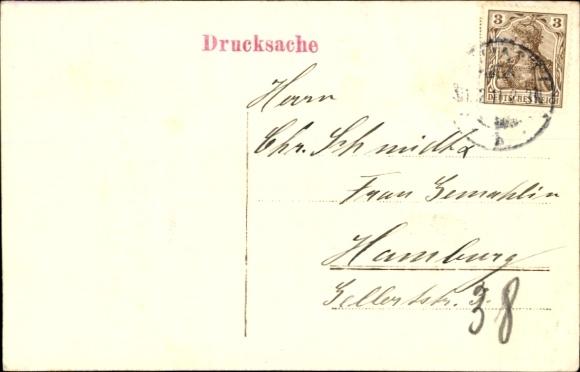 Drucksache
3
DEUTSCHES REICH
Herrn
Chr. Schmidt &
Frau Gemahlin
Hamburg
Gellertstr. 3.
38